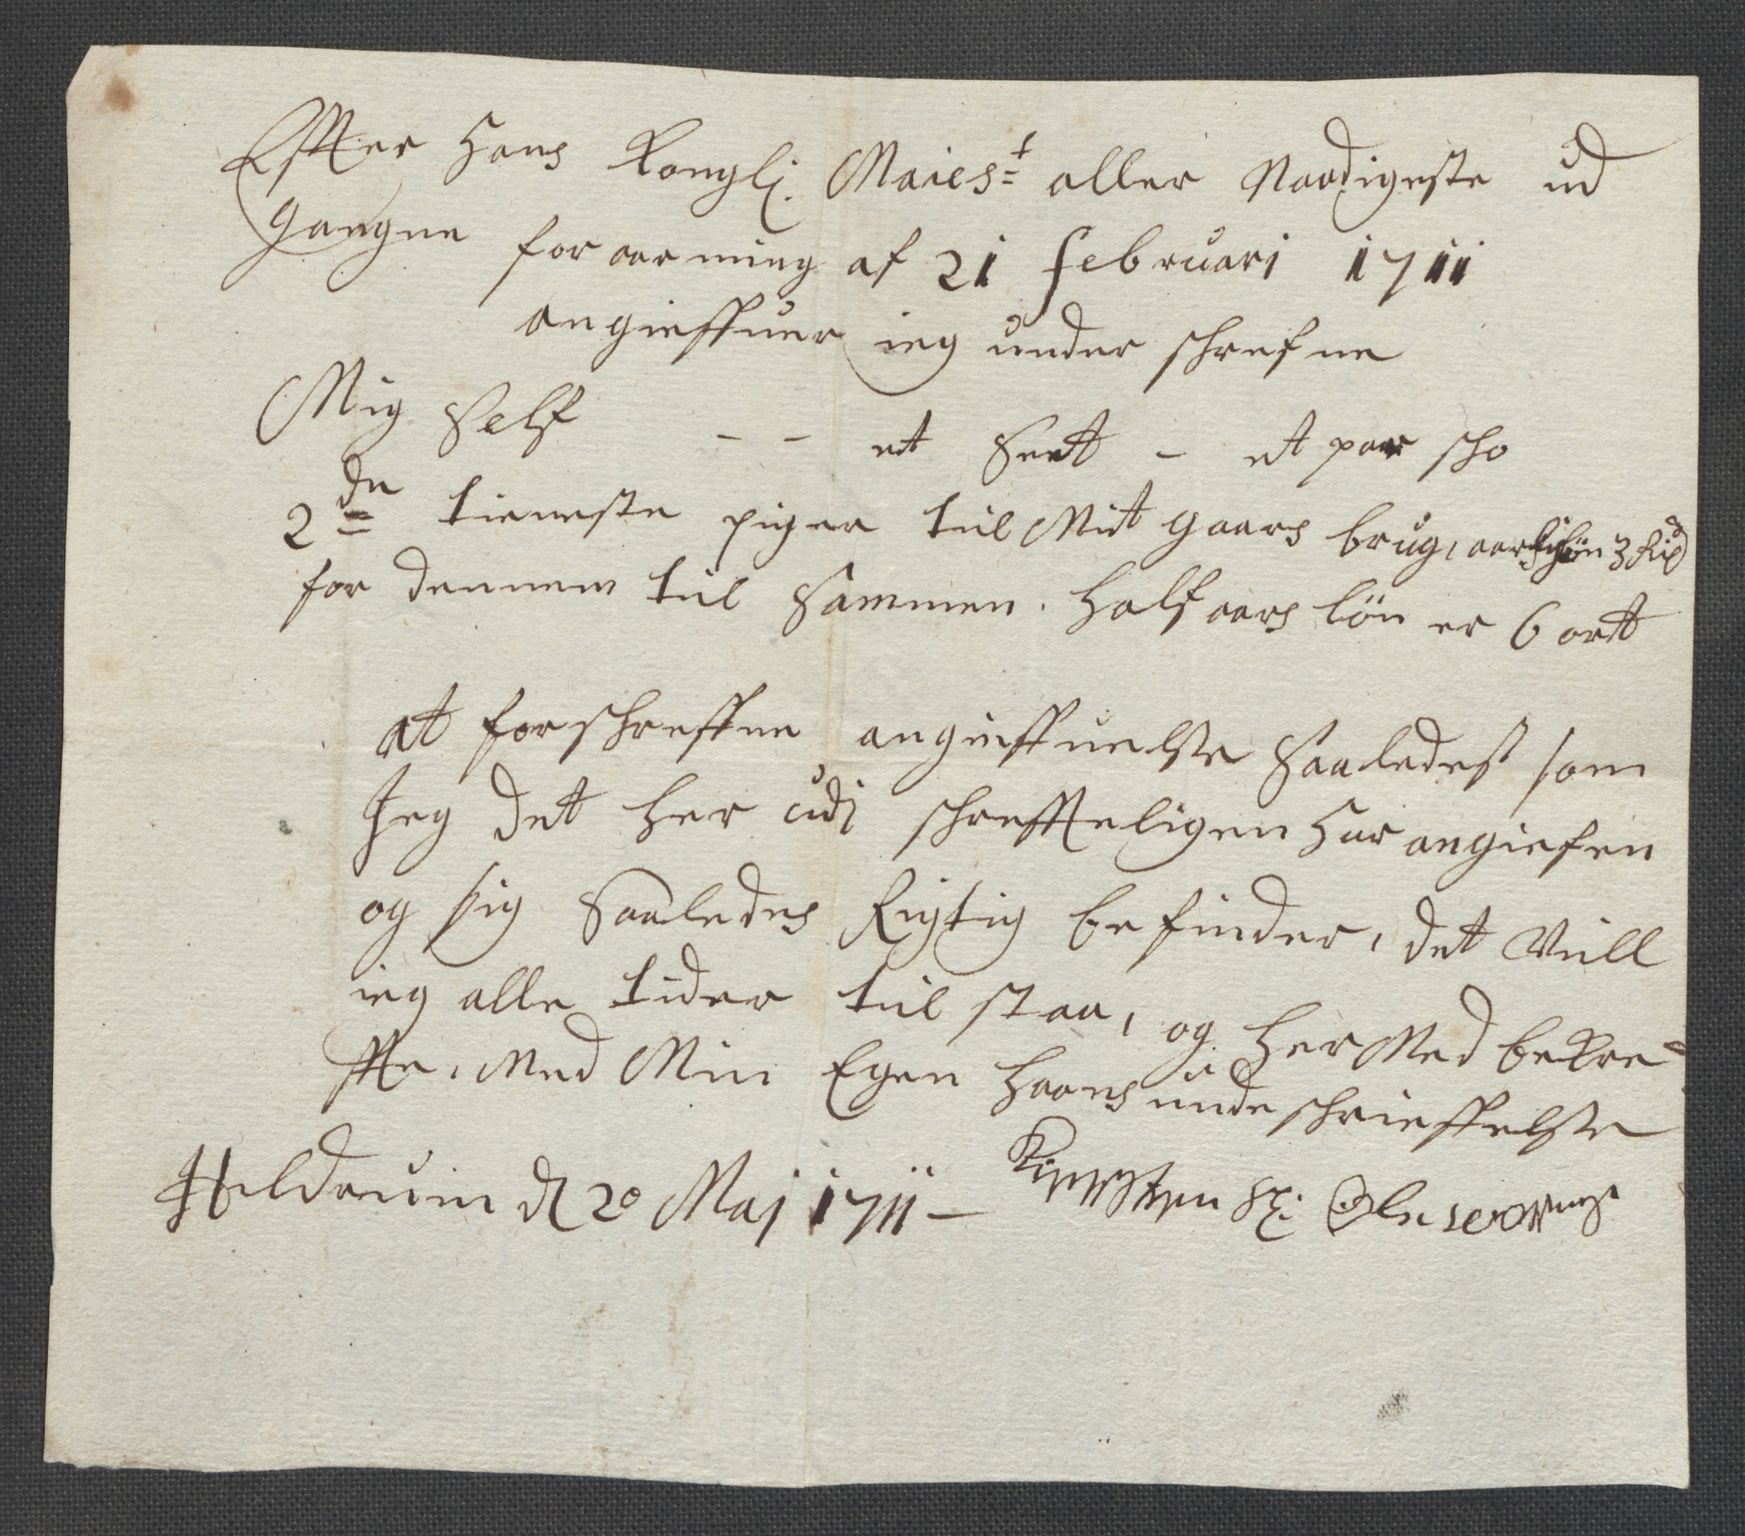 Effter Hans Kongli. Maiest: aller Naadigeste ud
gangne foraarning af 21 Februari 1711
angieffuer ieg under schrefne
Mig Self - - et Sett - et paar sko
2de tieneste piger till Mit gaars brug, aarlig løn 3 Rixd
for dennem till Sammen. Half aars løn er 6 ortt
at forschreffne angieffuelsse Saaledest som
Jeg det her udi schrefftteligen Har angiefen
og sig Saaledes Rigtig befinder, det Vill
ieg alle tider till staa, og her Med bekre
ffte, Med Min Egen Haans unde schrieffelsse
Heldrum d 20 Maj 1711 - Kirsten Sl: